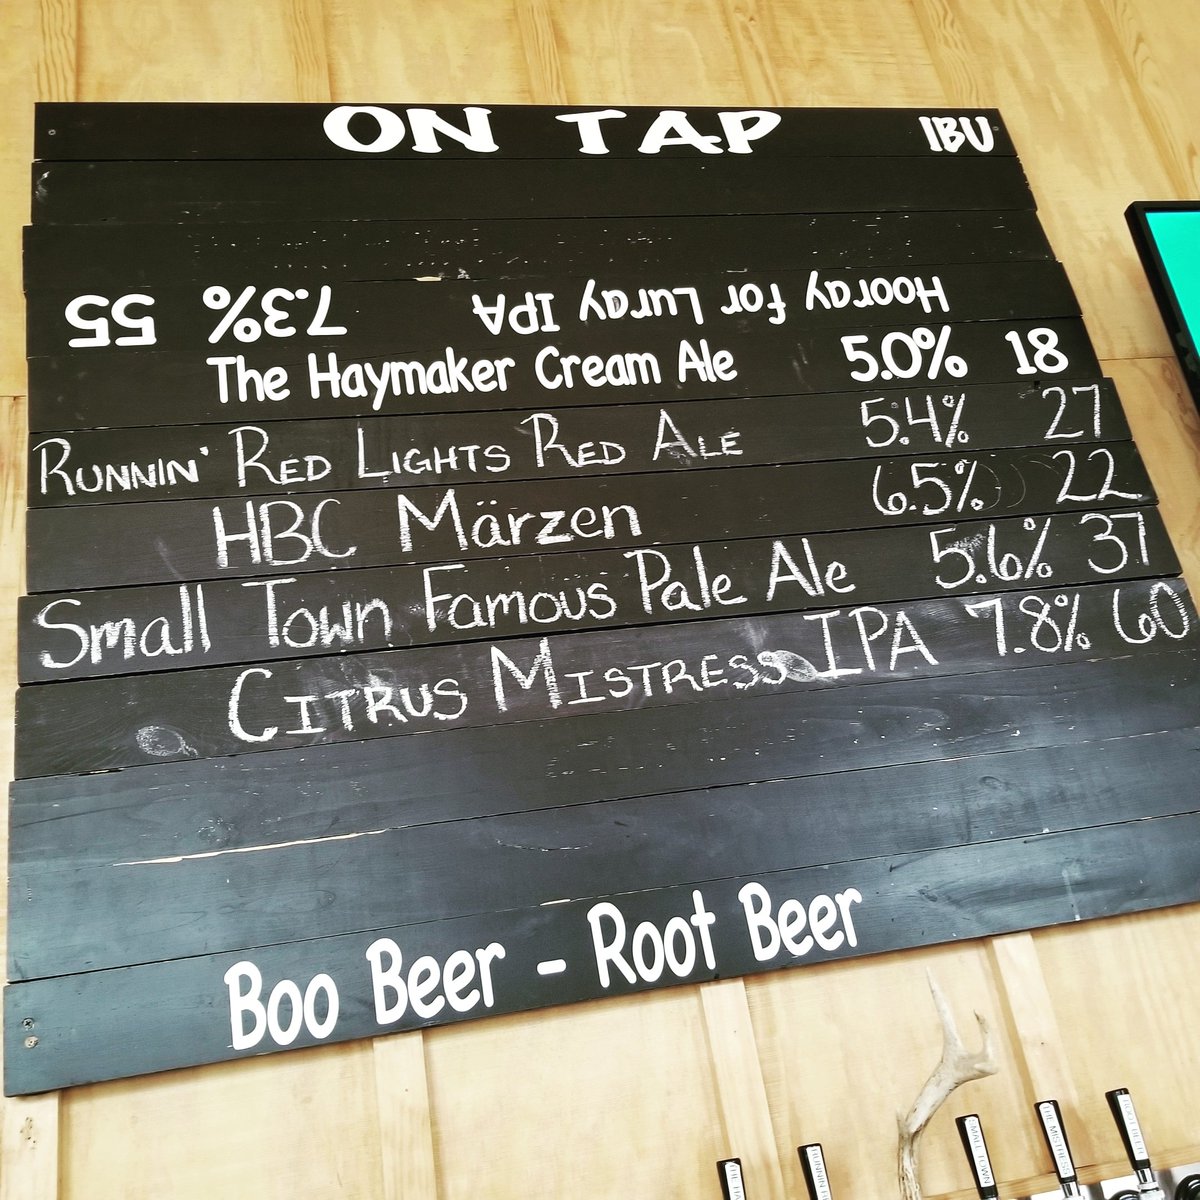 ON TAP IBU
Hooray for Luray IPA 7.3% 55
The Haymaker Cream Ale 5.0% 18
RUNNIN' RED LIGHTS RED ALE 5.4% 27
HBC Märzen 6.5% 22
Small Town Famous Pale Ale 5.6% 37
CITRUS MISTRESS IPA 7.8% 60
Boo Beer - Root Beer
SMALL TOWN
THE MISTRESS
ROOT BEER